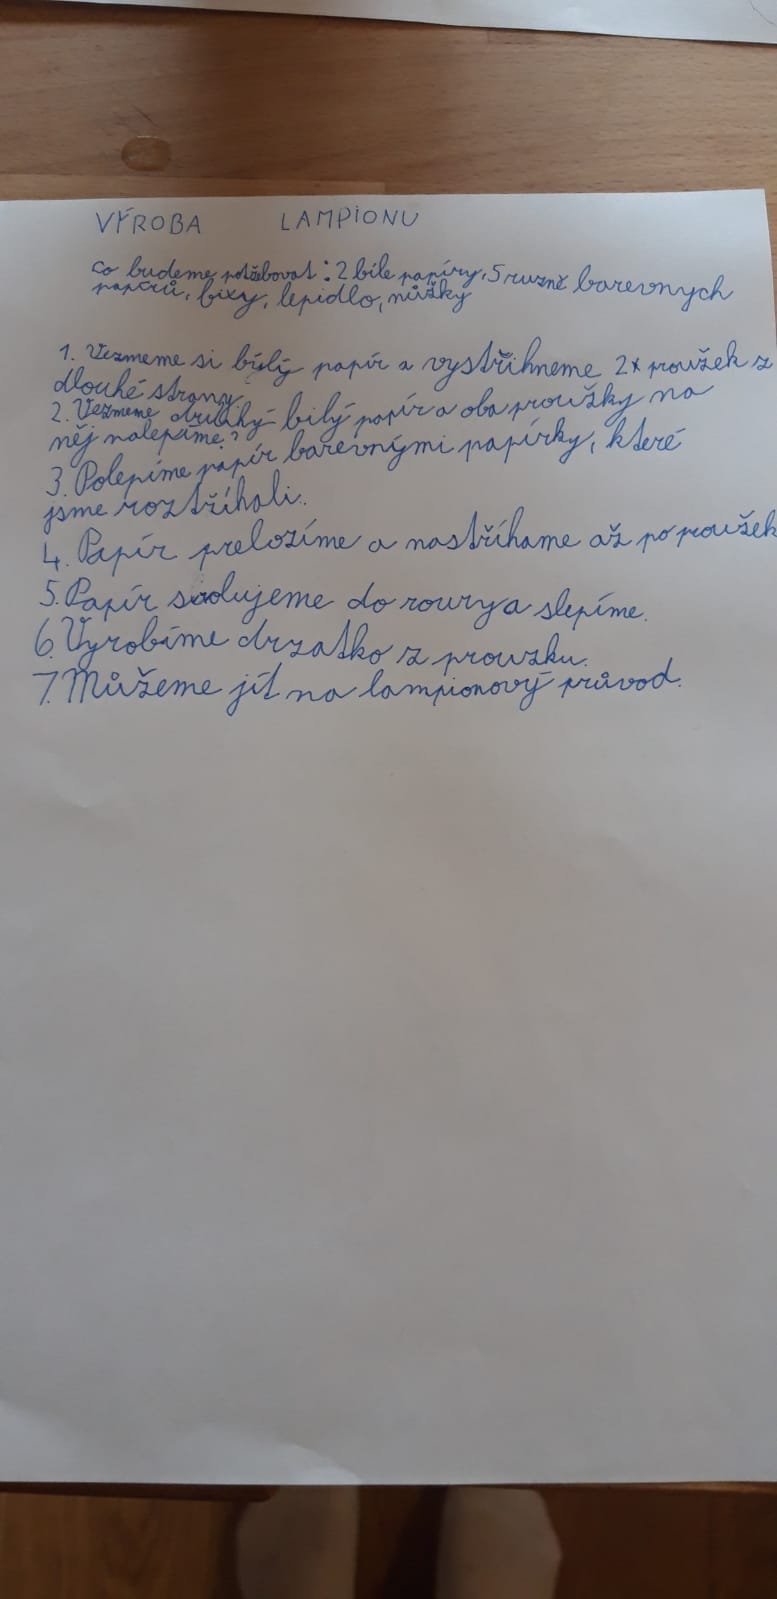 VÝROBA LAMPIONU
co budeme potžebovat: 2 bíle papíry, 5 ruzně barevnych
papírů, fixy, lepidlo, nůžky
1. Vezmeme si bílý papír a vystřihneme 2x proužek z
dlouhé strany
2. Vezmeme druhý bilý papír a oba proužky na
něj nalepíme.
3. Polepíme papír barevnými papírky, které
jsme roztříhali.
4. Papír preložíme a nastříhame až po proužek
5. Papír srolujeme do roury a slepíme.
6. Vyrobíme drzatko z prouzku.
7. Můžeme jít na lampionový průvod.